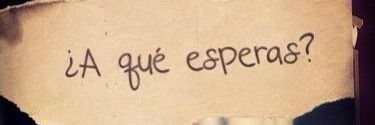 ¿A qué esperas?